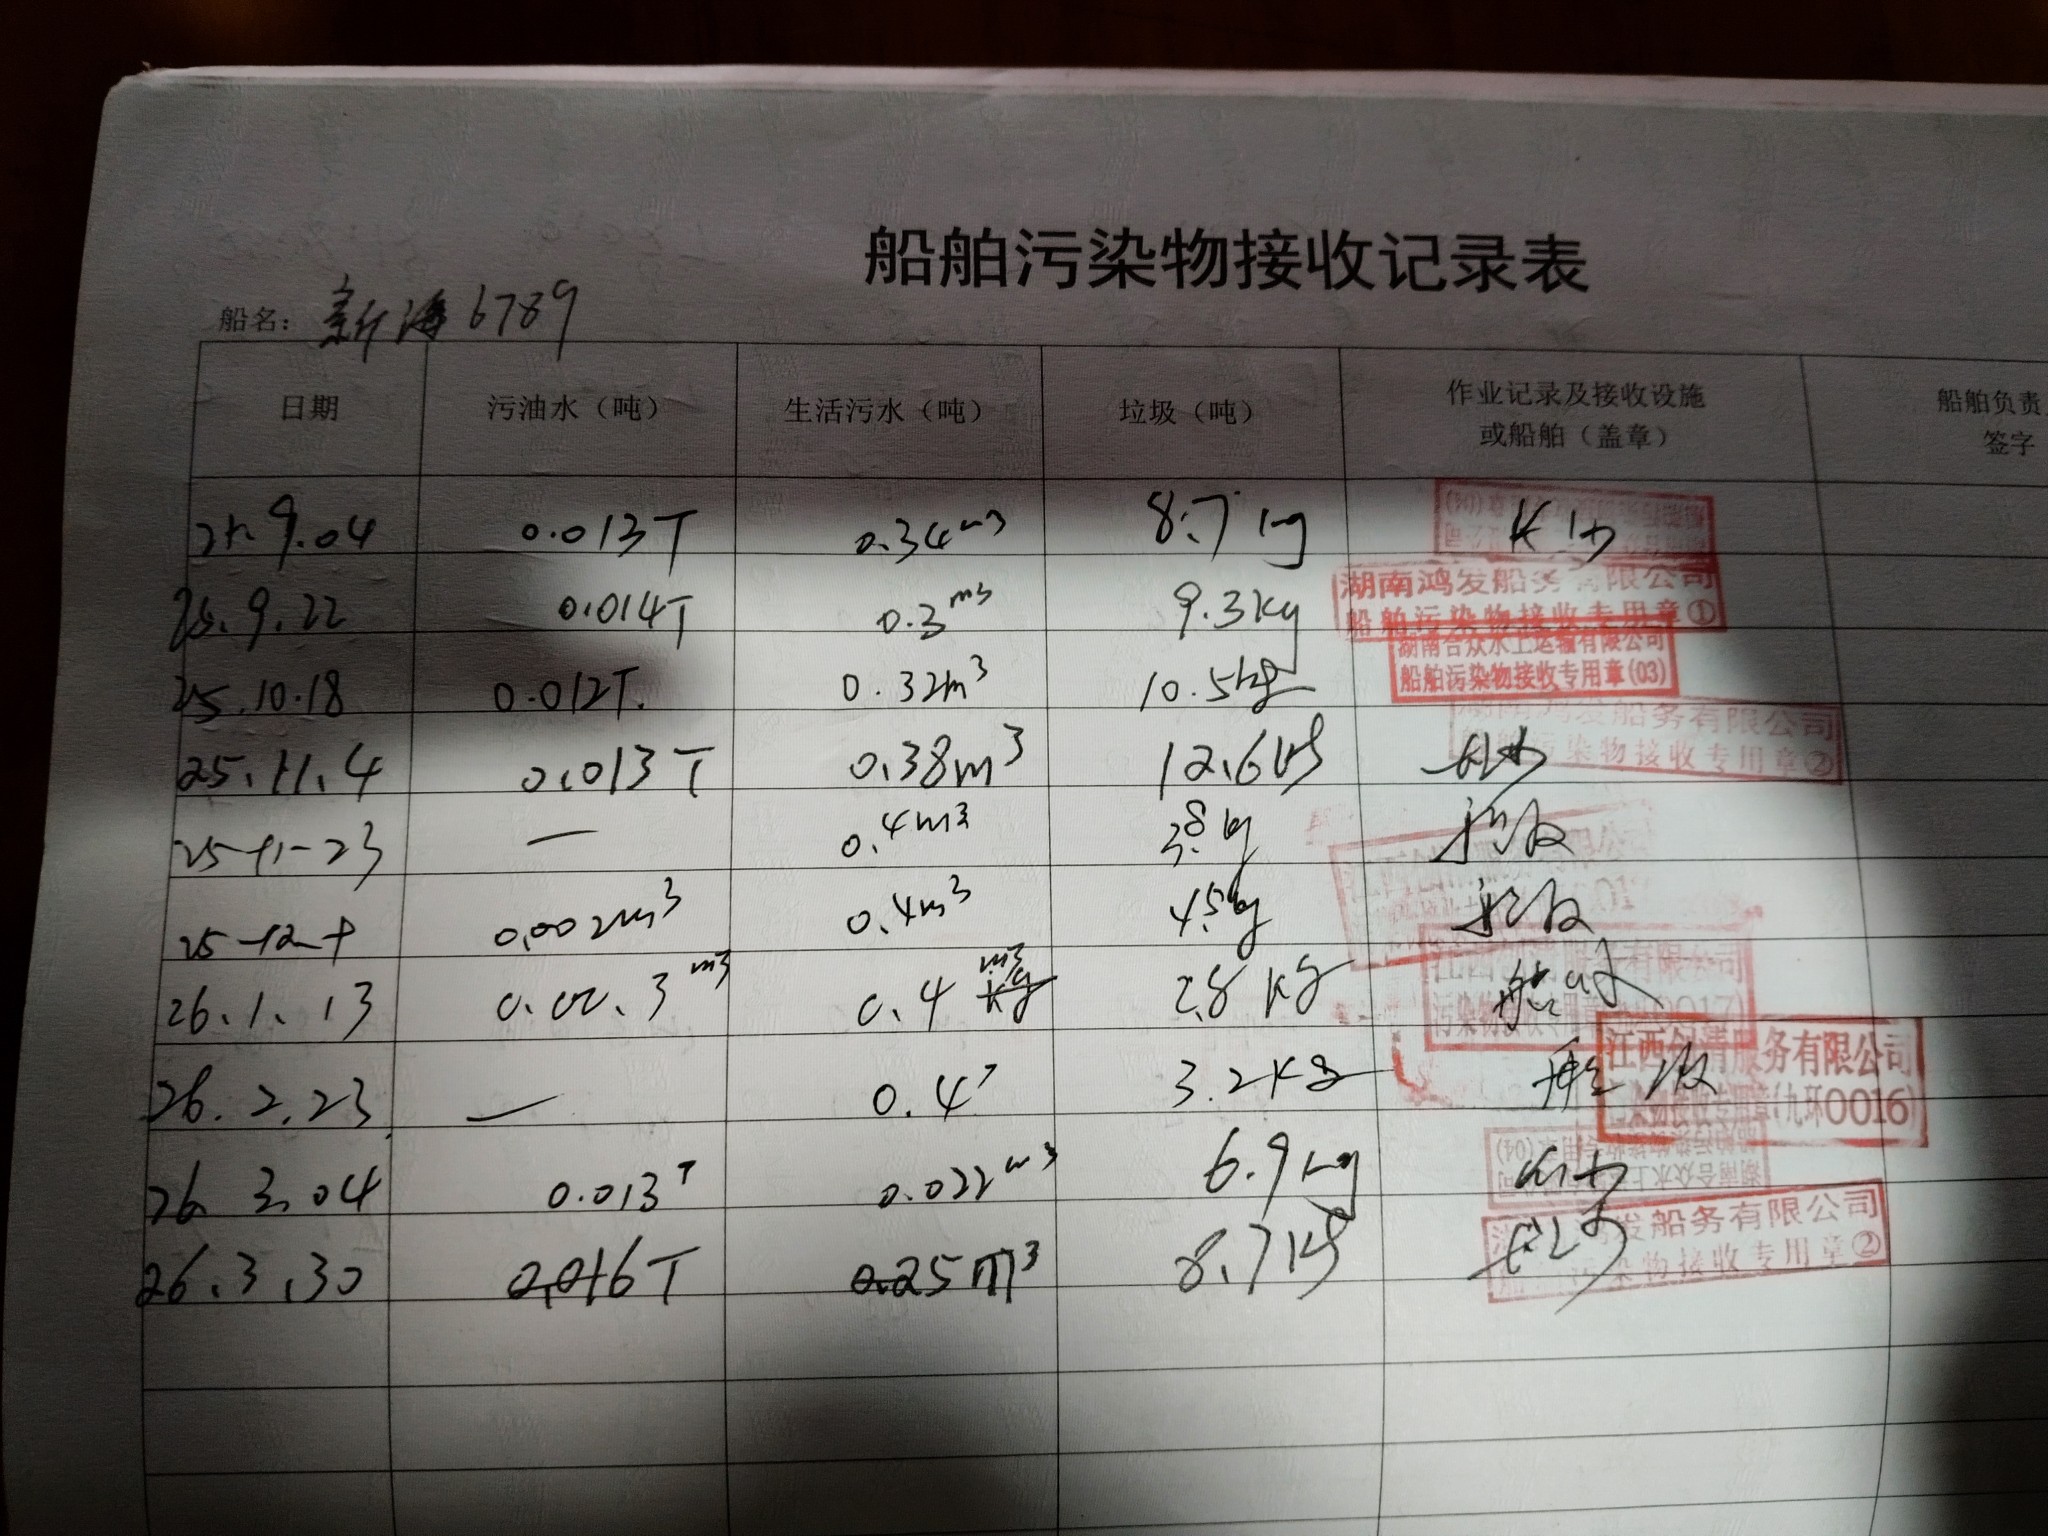 船舶污染物接收记录表
船名：新海6789
日期 污油水（吨） 生活污水（吨） 垃圾（吨） 作业记录及接收设施或船舶（盖章） 船舶负责 签字
25.9.04 0.013T 0.34m3 8.7kg
25.9.22 0.014T 0.3m3 9.3kg
湖南鸿发船务有限公司
船舶污染物接收专用章①
25.10.18 0.012T. 0.32m3 10.5kg
湖南合众水上运输有限公司
船舶污染物接收专用章(03)
25.11.4 0.013T 0.38m3 12.6kg
湖南鸿发船务有限公司
船舶污染物接收专用章②
25-11-23 — 0.4m3 3.8kg
25-12-7 0.002m3 0.4m3 4.5kg
26.1.13 0.00.3m3 0.4m3 2.8kg
26.2.23 — 0.4T 3.2kg
江西创清服务有限公司
(九环0016)
26.3.04 0.013T 0.022m3 6.9kg
湖南合众水上
(04)
26.3.30 0.016T 0.25m3 8.7kg
发船务有限公司
污染物接收专用章②